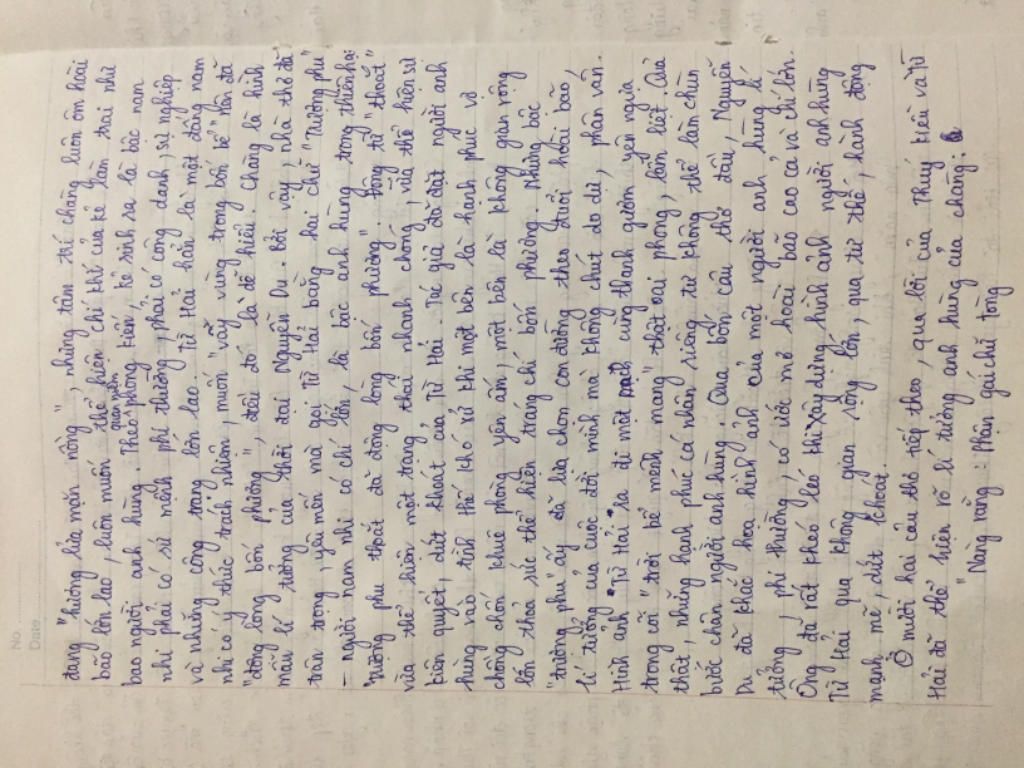 No.
Date
đang "hương lửa mặn nồng", nhưng tâm trí chàng luôn ôm hoài
bão lớn lao, luôn muốn thể hiện chí khí của kẻ làm trai như
bao người anh hùng. Theo quan niệm phong kiến, kẻ sinh ra là bậc nam
nhi phải có sứ mệnh phi thường, phải có công danh, sự nghiệp
và những công trạng lớn lao. Từ Hải hẳn là một đấng nam
nhi có ý thức trách nhiệm, muốn "vẫy vùng trong bốn bể" nên đã
"động lòng bốn phương", điều đó là dễ hiểu. Chàng là hình
mẫu lí tưởng của thời đại Nguyễn Du. Bởi vậy, nhà thơ đã
trân trọng, yêu mến mà gọi Từ Hải bằng hai chữ "Trượng phu"
- người nam nhi có chí lớn, là bậc anh hùng trong thiên hạ
"Trượng phu thoắt đã động lòng bốn phương" Động từ "thoắt"
vừa thể hiện một trạng thái nhanh chóng, vừa thể hiện sự
kiên quyết, dứt khoát của Từ Hải. Tác giả đã đặt người anh
hùng vào tình thế khó xử khi một bên là hạnh phúc vợ
chồng chốn khuê phòng yên ấm, một bên là không gian rộng
lớn thỏa sức thể hiện tráng chí bốn phương. Nhưng bậc
"trượng phu" ấy đã lựa chọn con đường theo đuổi hoài bão,
lí tưởng của cuộc đời mình mà không chút do dự, phân vân.
Hình ảnh Từ Hải ra đi một mình cùng thanh gươm yên ngựa
trong cõi "trời bể mênh mang" thật oai phong, lẫm liệt. Quả
thật, những hạnh phúc cá nhân riêng tư không thể làm chùn
bước chân người anh hùng. Qua bốn câu thơ đầu, Nguyễn
Du đã khắc họa hình ảnh của một người anh hùng lí
tưởng, phi thường, có ước mơ hoài bão cao cả và chí lớn.
Ông đã rất khéo léo khi xây dựng hình ảnh người anh hùng
Từ Hải qua không gian rộng lớn, qua tư thế, hành động
mạnh mẽ, dứt khoát.
Ở mười hai câu thơ tiếp theo, qua lời của Thúy Kiều và Từ
Hải đã thể hiện rõ lí tưởng anh hùng của chàng:
"Nàng rằng: Phận gái chữ tòng